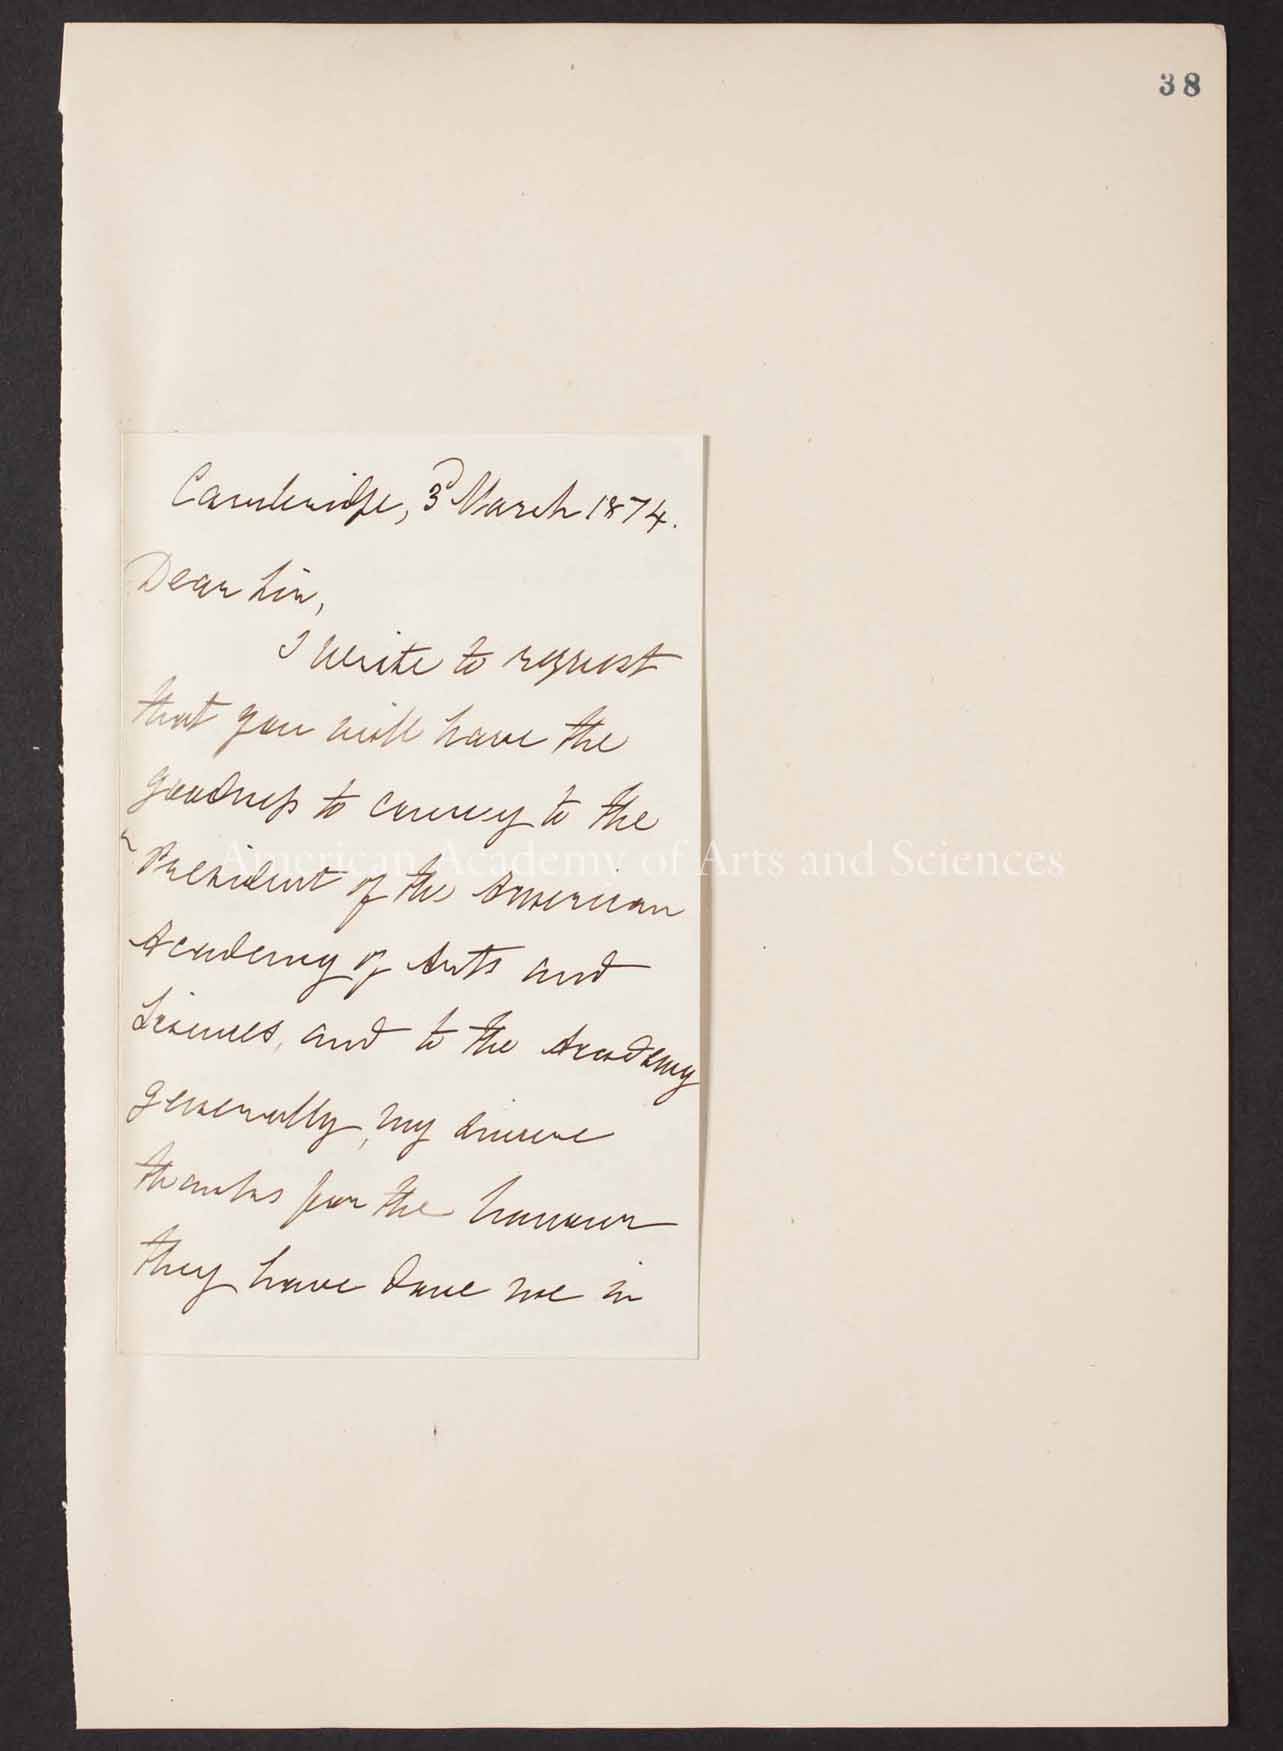 38
Cambridge, 3d March 1874.
Dear Sir,
I write to request
that you will have the
goodness to convey to the
President of the American
Academy of Arts and
Sciences, and to the Academy
generally, my sincere
thanks for the honour
they have done me in
American Academy of Arts and Sciences